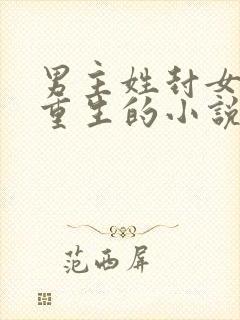 男主姓封女
重生的小說
范西屏